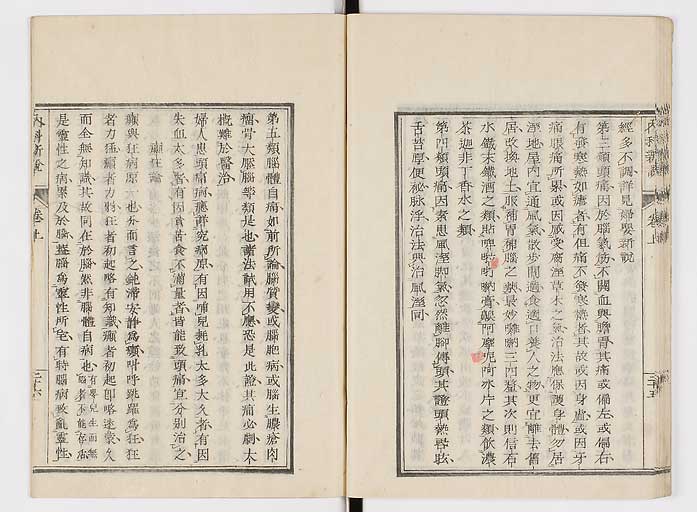 經多不調詳見婦嬰新說
第三類頭痛因於腦氣筋不關血與膽胃其痛或偏左或偏右
有發寒熱如瘧者有但痛不發寒熱者其故或因身虛或因牙
痛眼痛所累或因感受腐溼草木之氣治法應保護身體勿居
溼地屋內宜通風氣散步閒適食適口養人之物更宜離去舊
居改換地土服補胃補腦之
水鐵末鐵酒之類
茶迦非丁香水之類
第四類頭痛因素患風溼腳氣忽然離腳傳頭其證頭熱昏眩
舌苔厚便秘脉浮治法與治風溼同
第五類腦體自痛如前所論腦質變或腦胞病或腦生膿瘡肉
瘤骨大腦腦等類是也諸法試用不應恐是此證其痛必劇大
概難於醫治
婦人患頭痛病應審究病原有因哺兒耗乳太多大久者有因
失血太多者有因貧苦食不滿量者皆能致頭痛宜分別治之
癲狂論
癲與狂病原一也分而言之純滯安靜為癲叫呼跳躍為狂狂
者力猛癲者力弱狂者初起略有知識癲者初起卽咯迷蒙久
而全無知識其故同在於腦然非腦體自病也
是靈性之病累及於腦蓋腦為靈性所宅有時腦病致亂靈性
內科新說
卷上
二十六